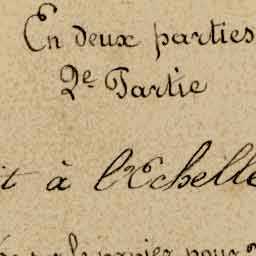 En deux parties
2e Partie
it à l'Echelle
le papier pour